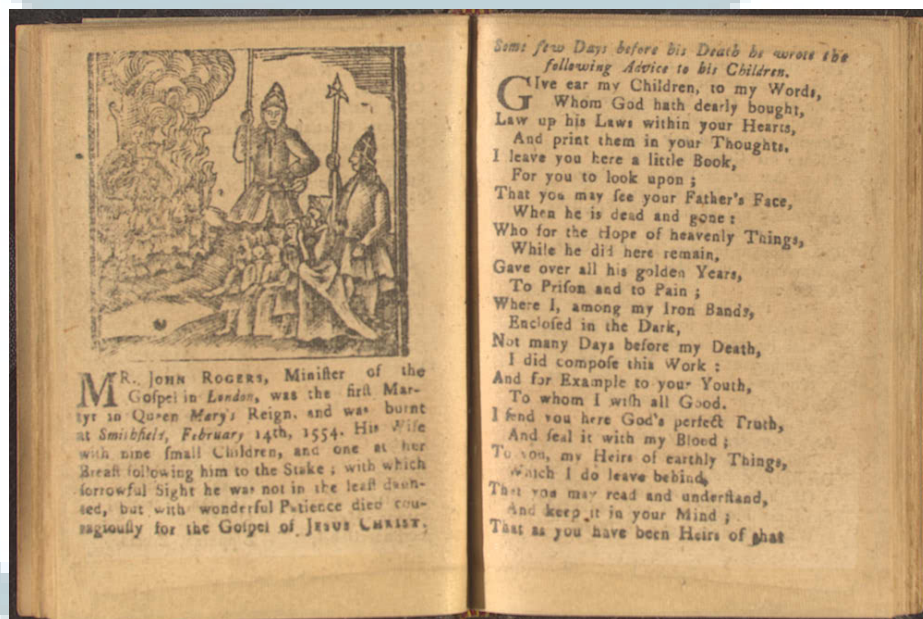 MR. JOHN ROGERS, Miniſter of the
Goſpel in London, was the firſt Mar-
tyr in Queen Mary's Reign, and was burnt
at Smithfield, February 14th, 1554. His Wife
with nine ſmall Children, and one at her
Breaſt following him to the Stake; with which
ſorrowful Sight he was not in the leaſt daun-
ted, but with wonderful Patience died cou-
ragiouſly for the Goſpel of JESUS CHRIST.
Some few Days before his Death he wrote the
following Advice to his Children.
GIve ear my Children, to my Words,
Whom God hath dearly bought,
Law up his Laws within your Hearts,
And print them in your Thoughts.
I leave you here a little Book,
For you to look upon;
That you may ſee your Father's Face,
When he is dead and gone:
Who for the Hope of heavenly Things,
While he did here remain,
Gave over all his golden Years,
To Priſon and to Pain;
Where I, among my Iron Bands,
Encloſed in the Dark,
Not many Days before my Death,
I did compoſe this Work:
And for Example to your Youth,
To whom I wiſh all Good.
I ſend you here God's perfect Truth,
And ſeal it with my Blood;
To you, my Heirs of earthly Things,
Which I do leave behind,
That you may read and underſtand,
And keep it in your Mind;
That as you have been Heirs of that